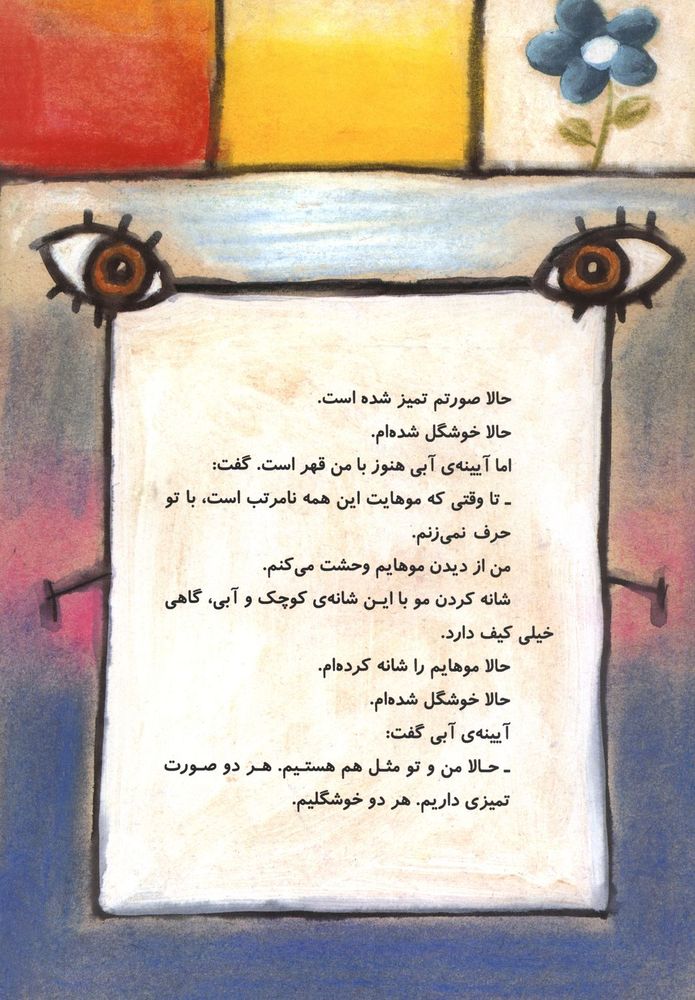 حالا صورتم تمیز شده است.
حالا خوشگل شده‌ام.
اما آیینه‌ی آبی هنوز با من قهر است. گفت:
ـ تا وقتی که موهایت این همه نامرتب است، با تو
حرف نمی‌زنم.
من از دیدن موهایم وحشت می‌کنم.
شانه کردن مو با این شانه‌ی کوچک و آبی، گاهی
خیلی کیف دارد.
حالا موهایم را شانه کرده‌ام.
حالا خوشگل شده‌ام.
آیینه‌ی آبی گفت:
ـ حالا من و تو مثل هم هستیم. هر دو صورت
تمیزی داریم. هر دو خوشگلیم.